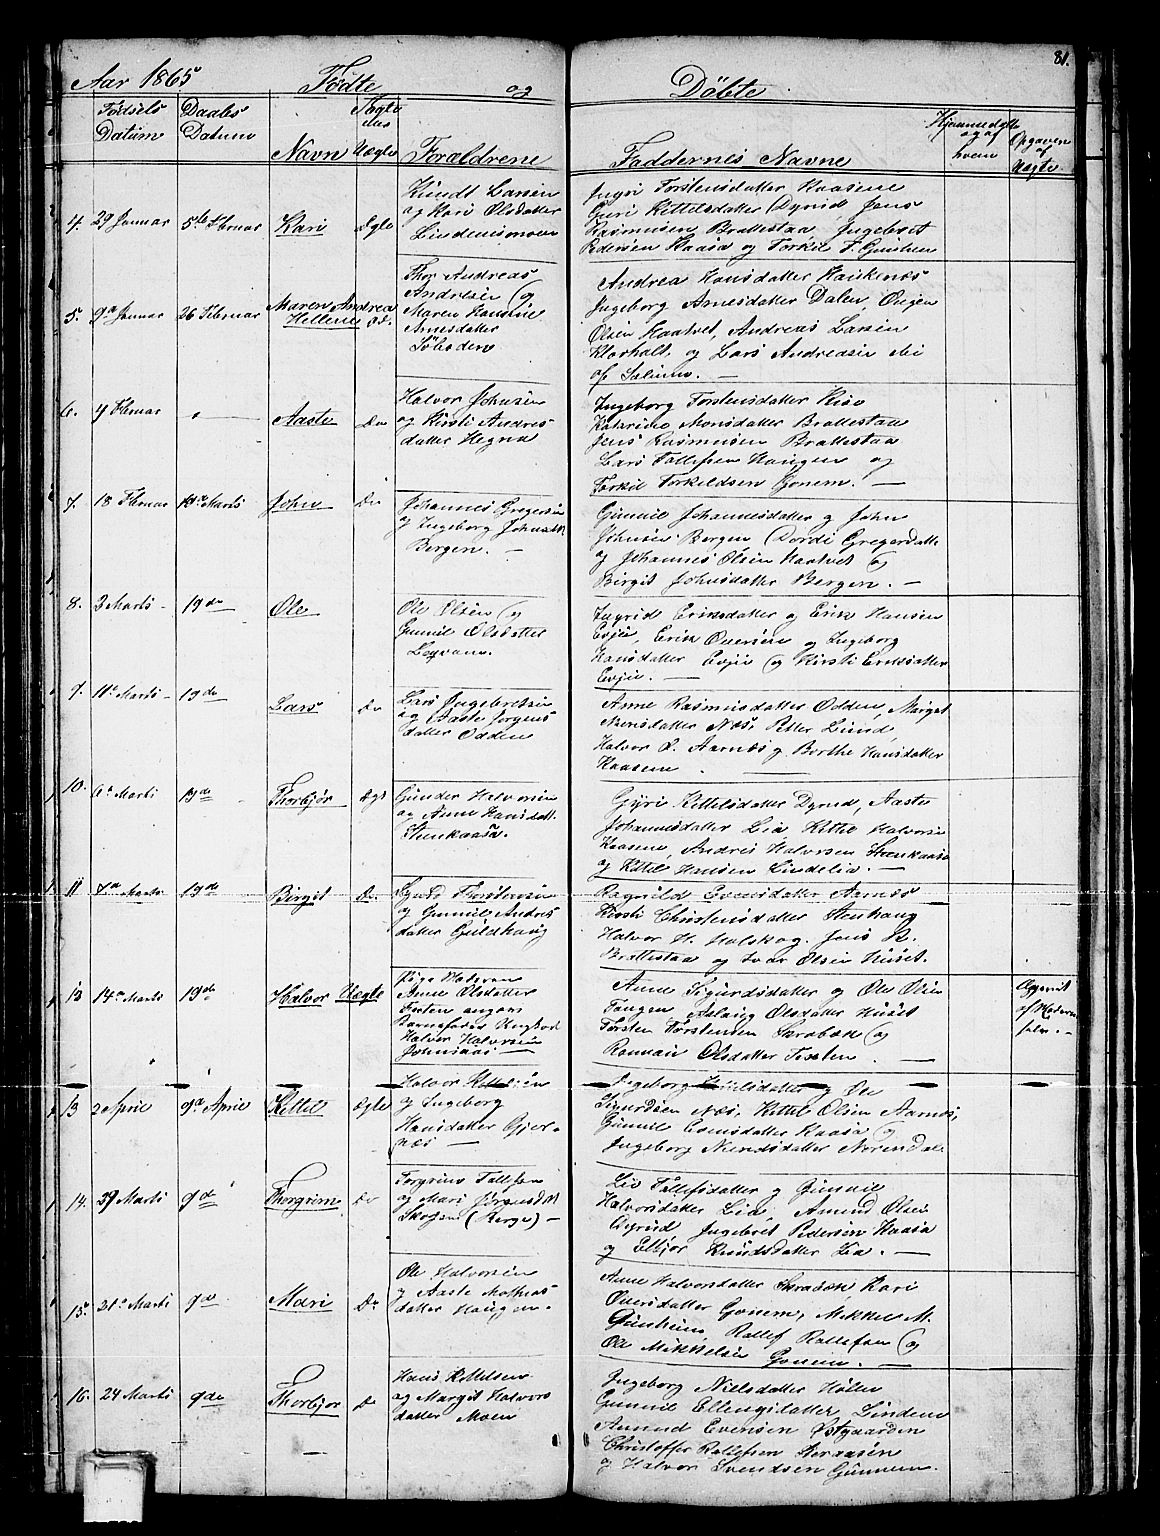 81.
Aar 1865 Fødte og Døbte
Fødsels Datum
Daabs Datum
Navn
Ægte eller Uægte
Forældrene
Faddernes Navne
Hjemmedøbte og af hvem
Opgaven af Uægte.
4. 29 Januar 5te Februar Kari Ægte
Knudt Larsen
og Kari Olsdatter
Lindenismoen
Ingri Torstensdatter Kaasene
Guri Kittelsdatter Dyrud Jens
Rasmusen Brattestaa, Ingebret
Pedersen Kaasa og Torkil F. Gunheim
5. 9de Januar 26 Februar Maren Andrea
Hellene
Thor Andreas
Andresen og
Maren Hansine
Arnesdatter
Andrea Hansdatter
Ingeborg Arnesdatter Dalen
Olsen Haatvet, Andreas Larsen
Klovholt, og Lars Andreasen
af Salum. —
6. 4 Februar " — Aaste Do
Halvor Johnsen
og Kirsti Andres
datter Hegna
Ingeborg Torstensdatter
Katarine Monsdatter Brattestaa
Jens Rasmusen Brattestaa
Lars Tollefsen Haugen og
Torkil Torkildsen Gonem. —
7. 18 Februar Marts John Do
Johannes Gregersen
og Ingeborg Johnsdtr
Bergen. —
Gunnil Johannesdatter og John
Johnsen Bergen Dordi Gregersdatter
og Johannes Olsen Haatvet og
Birgit Johnsdatter Bergen. —
8. 3 Marts 19de Ole
Ole Olsen og
Gunnil Olsdatter
Ingrid Eriksdatter og Erik Hansen
Evju, Erik Oversen og Ingeborg
Hansdatter Evju og Kirsti Eriksdatter
Evju. —
9. 11te Marts 19de Lars Do
Lars Ingebretsen
og Aaste Jørgens
datter Odden
Anne Rasmusdatter Odden, Margit
Næs, Petter Lund,
Halvor L. Aarnæs og Berthe Hansdatter
Kaasene
10. 6te Marts 19de Thorbjør Ægte
Gunder Halvorsen
og Anne Hansdatt.
Steenkaasa.
Gyri Kittelsdatter Dyrud, Aaste
Johannesdatter Lia Kittil Halvorsen
Kaasene, Andres Halvorsen Steenkaasa
og Kittil Hansen Lindelia. —
11 7de Marts 19de Birgit Do
Torstensen
og Gunnil Andres
datter Guldhaug
Ragnild Evensdatter Aarnæs
Kirsti Christensdatter Stenhaug
Halvor H. Holskog. Jens R.
Brattestaa og Ivar Olsen Huset.
12 14de Marts 19de Halvor Uægte
Pige Moderen
Anne Olsdatter
Barnefader Ungkarl
Halvor Halvorsen
Anne Sigurdsdatter og Ole Olsen
Tangen Aslaug Olsdatter Huset
Torsten Torstensen Skrabæk og
Olsdatter
Opgivet
af Moderen
selv. —
13 2 April 9de April Kittel Ægte
Halvor Kittelsen
og Ingeborg
Hansdatter Gjer-
næs —
Ingeborg og Ole
Sigurdsen Næs, Kittel Olsen Aarnæs,
Gunnil Evensdatter Kaasa og
Ingeborg Nerisdatter Norendal
14. 29 Marts 9de Thorgrim Do
Torgrim Tollefsen
og Mari Jørgensdtr
Skogen (Berge) —
Liv Tollefsdatter og Gunnil
Halvorsdatter Lia, Amund Olsen
Ingebret Pedersen Kaasa
og Elbjør Knudsdatter Lia. —
15. 21de Marts 9de Mari Do
Ole Halvorsen
og Aaste Mathias
datter Haugen.
Anne Halvorsdatter Skrabæk Kari
Oversdatter Gonem, Mikkel M.
Gunheim, Rollef Rollefsen og
Ole Mikkelsen Gonem. —
16. 24 Marts 9de Thorbjør Do
Hans Kittelsen
og Margit Halvors
datter Moen
Ingeborg Nielsdatter Holten
Gunnil Ellengsdatter Lindem
Amund Evensen Østgaarden
Christoffer Rollefsen
og Halvor Svendsen Gunnem.